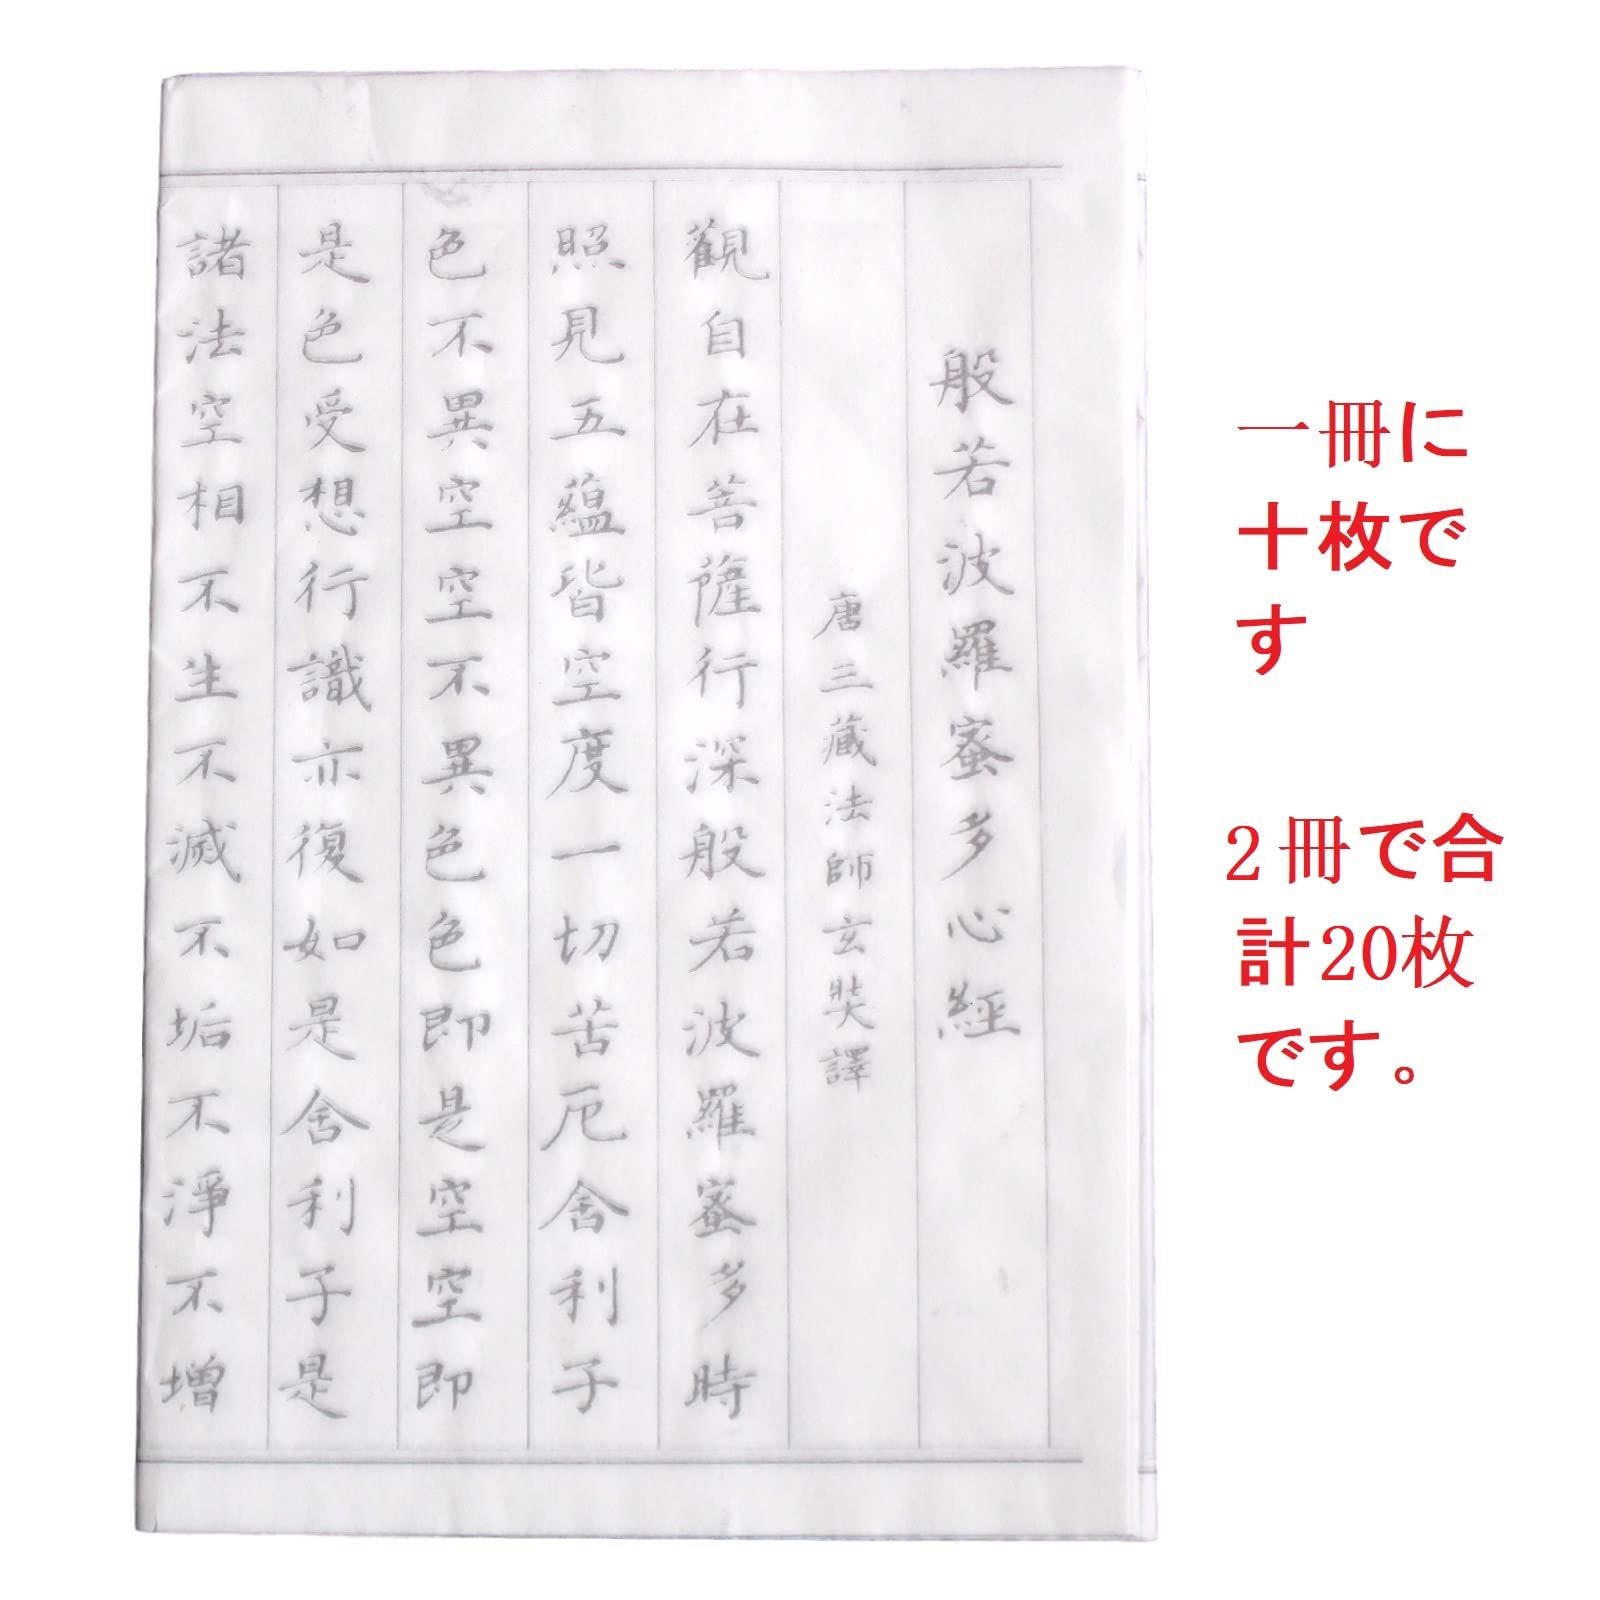 般若波羅蜜多心經
唐三藏法師玄奘譯
觀自在菩薩行深般若波羅蜜多時
照見五蘊皆空度一切苦厄舍利子
色不異空空不異色色即是空空即
是色受想行識亦復如是舍利子是
諸法空相不生不滅不垢不淨不增
一冊に
十枚で
す
2冊で合
計20枚
です。